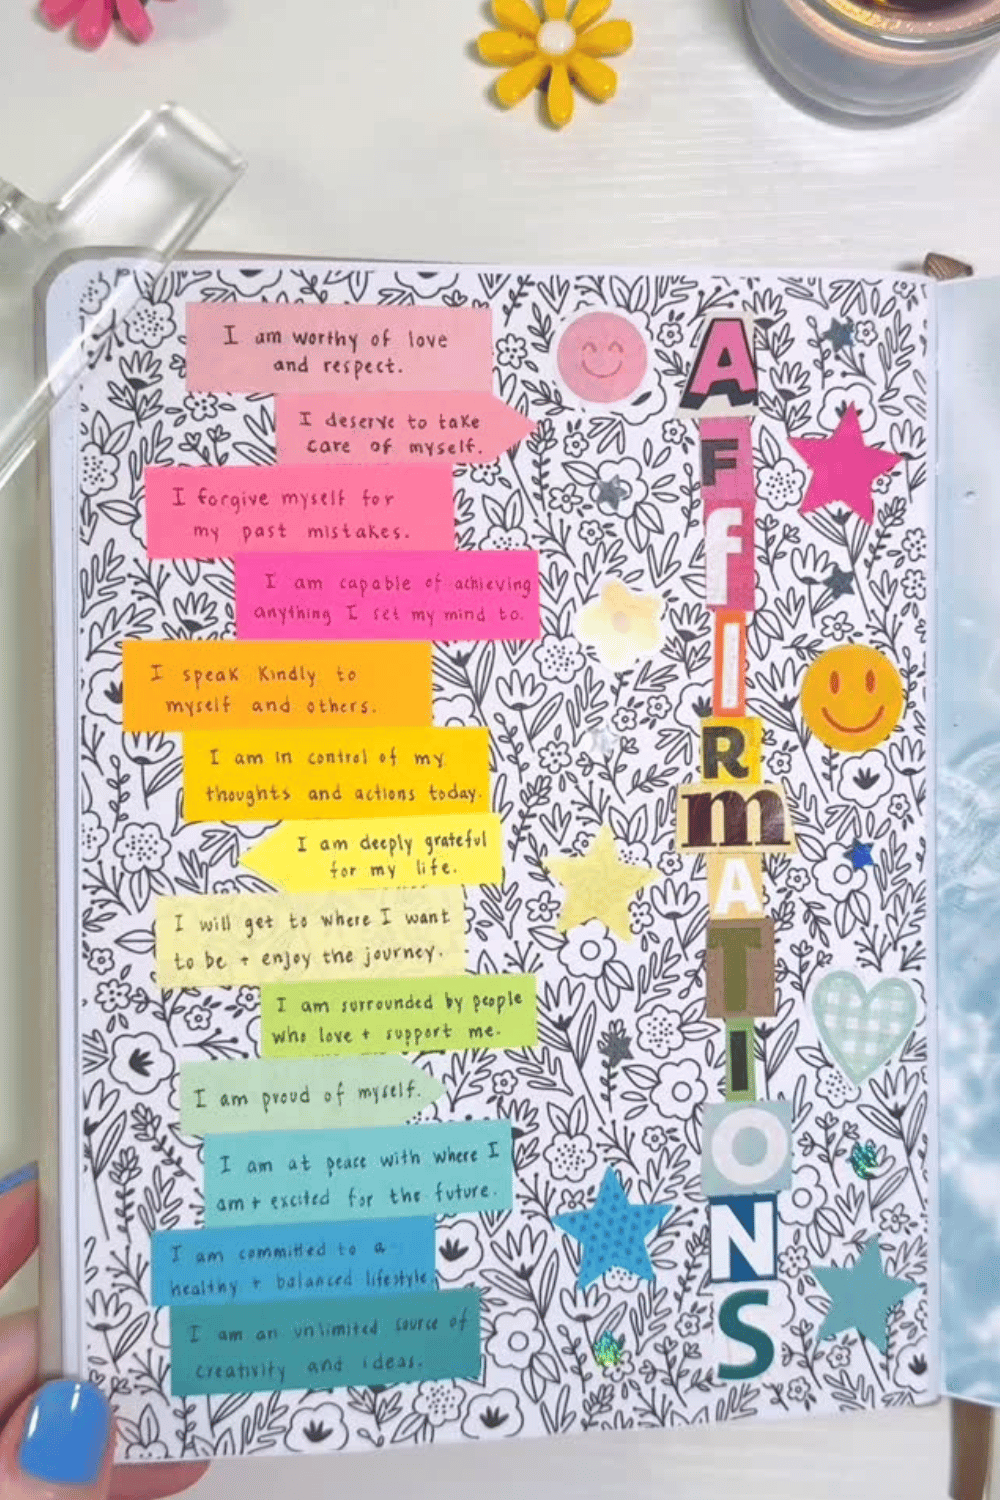 I am worthy of love
and respect.
I deserve to take
care of myself.
I forgive myself for
my past mistakes.
I am capable of achieving
anything I set my mind to.
I speak kindly to
myself and others.
I am in control of my
thoughts and actions today.
I am deeply grateful
for my life.
I will get to where I want
to be + enjoy the journey.
I am surrounded by people
who love + support me.
I am proud of myself.
I am at peace with where I
am + excited for the future.
I am committed to a
healthy + balanced lifestyle.
I am an unlimited source of
creativity and ideas.
AFfIRmATIONS